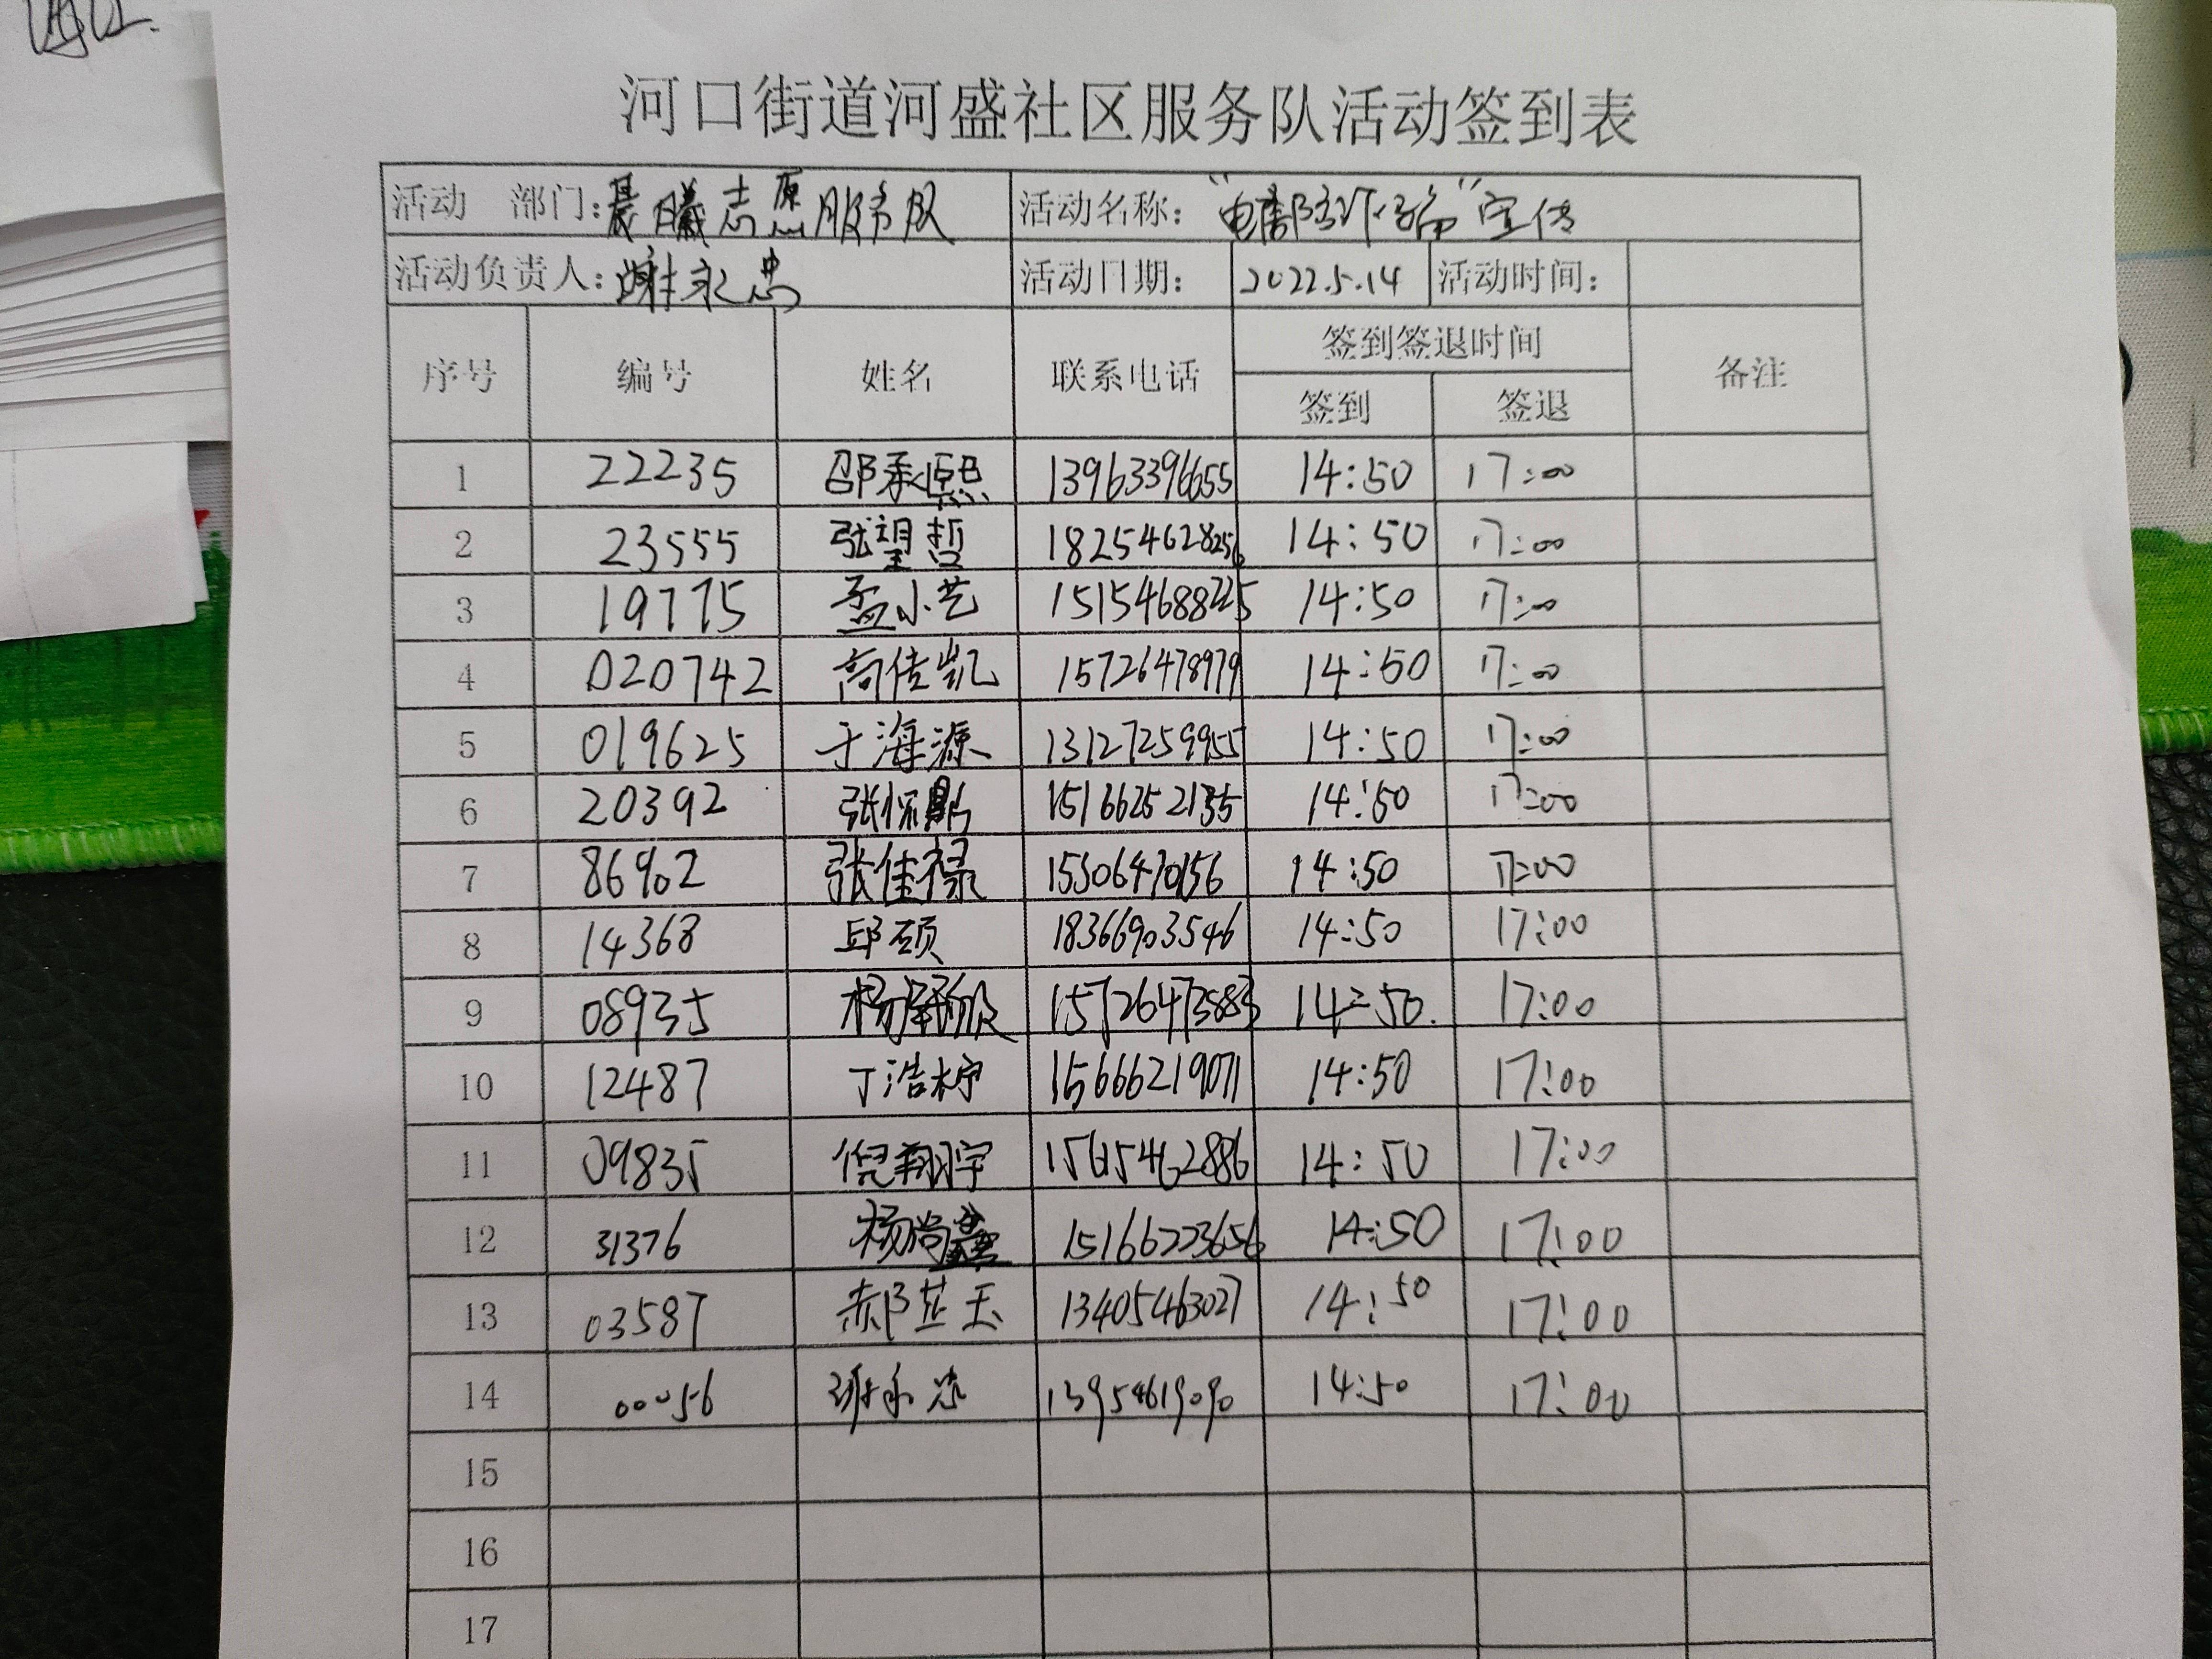 河口街道河盛社区服务队活动签到表
活动 部门: 晨曦志愿服务队 活动名称: "电信防诈骗"宣传
活动负责人: 谢永忠 活动日期: 2022.5.14 活动时间:
序号 编号 姓名 联系电话 签到签退时间 备注
签到 签退
1 22235 邵承熙 13963396655 14:50 17:00
2 23555 张望哲 18254628256 14:50 17:00
3 19775 孟小艺 15154688225 14:50 17:00
4 020742 高传凯 15726478979 14:50 17:00
5 019625 于海源 13127259955 14:50 17:00
6 20392 张保 15166252135 14:50 17:00
7 86902 张佳禄 14:50 17:00
8 14368 邱硕 18366903546 14:50 17:00
9 08935 杨 15726473583 14:50. 17:00
10 12487 丁浩柠 15666219071 14:50 17:00
11 09835 倪翔宇 15615462886 14:50 17:00
12 31376 杨尚鑫 15166223656 14:50 17:00
13 03587 郝芷玉 13405463027 14:50 17:00
14 00056 谢永忠 13954619090 14:50 17:00
15
16
17